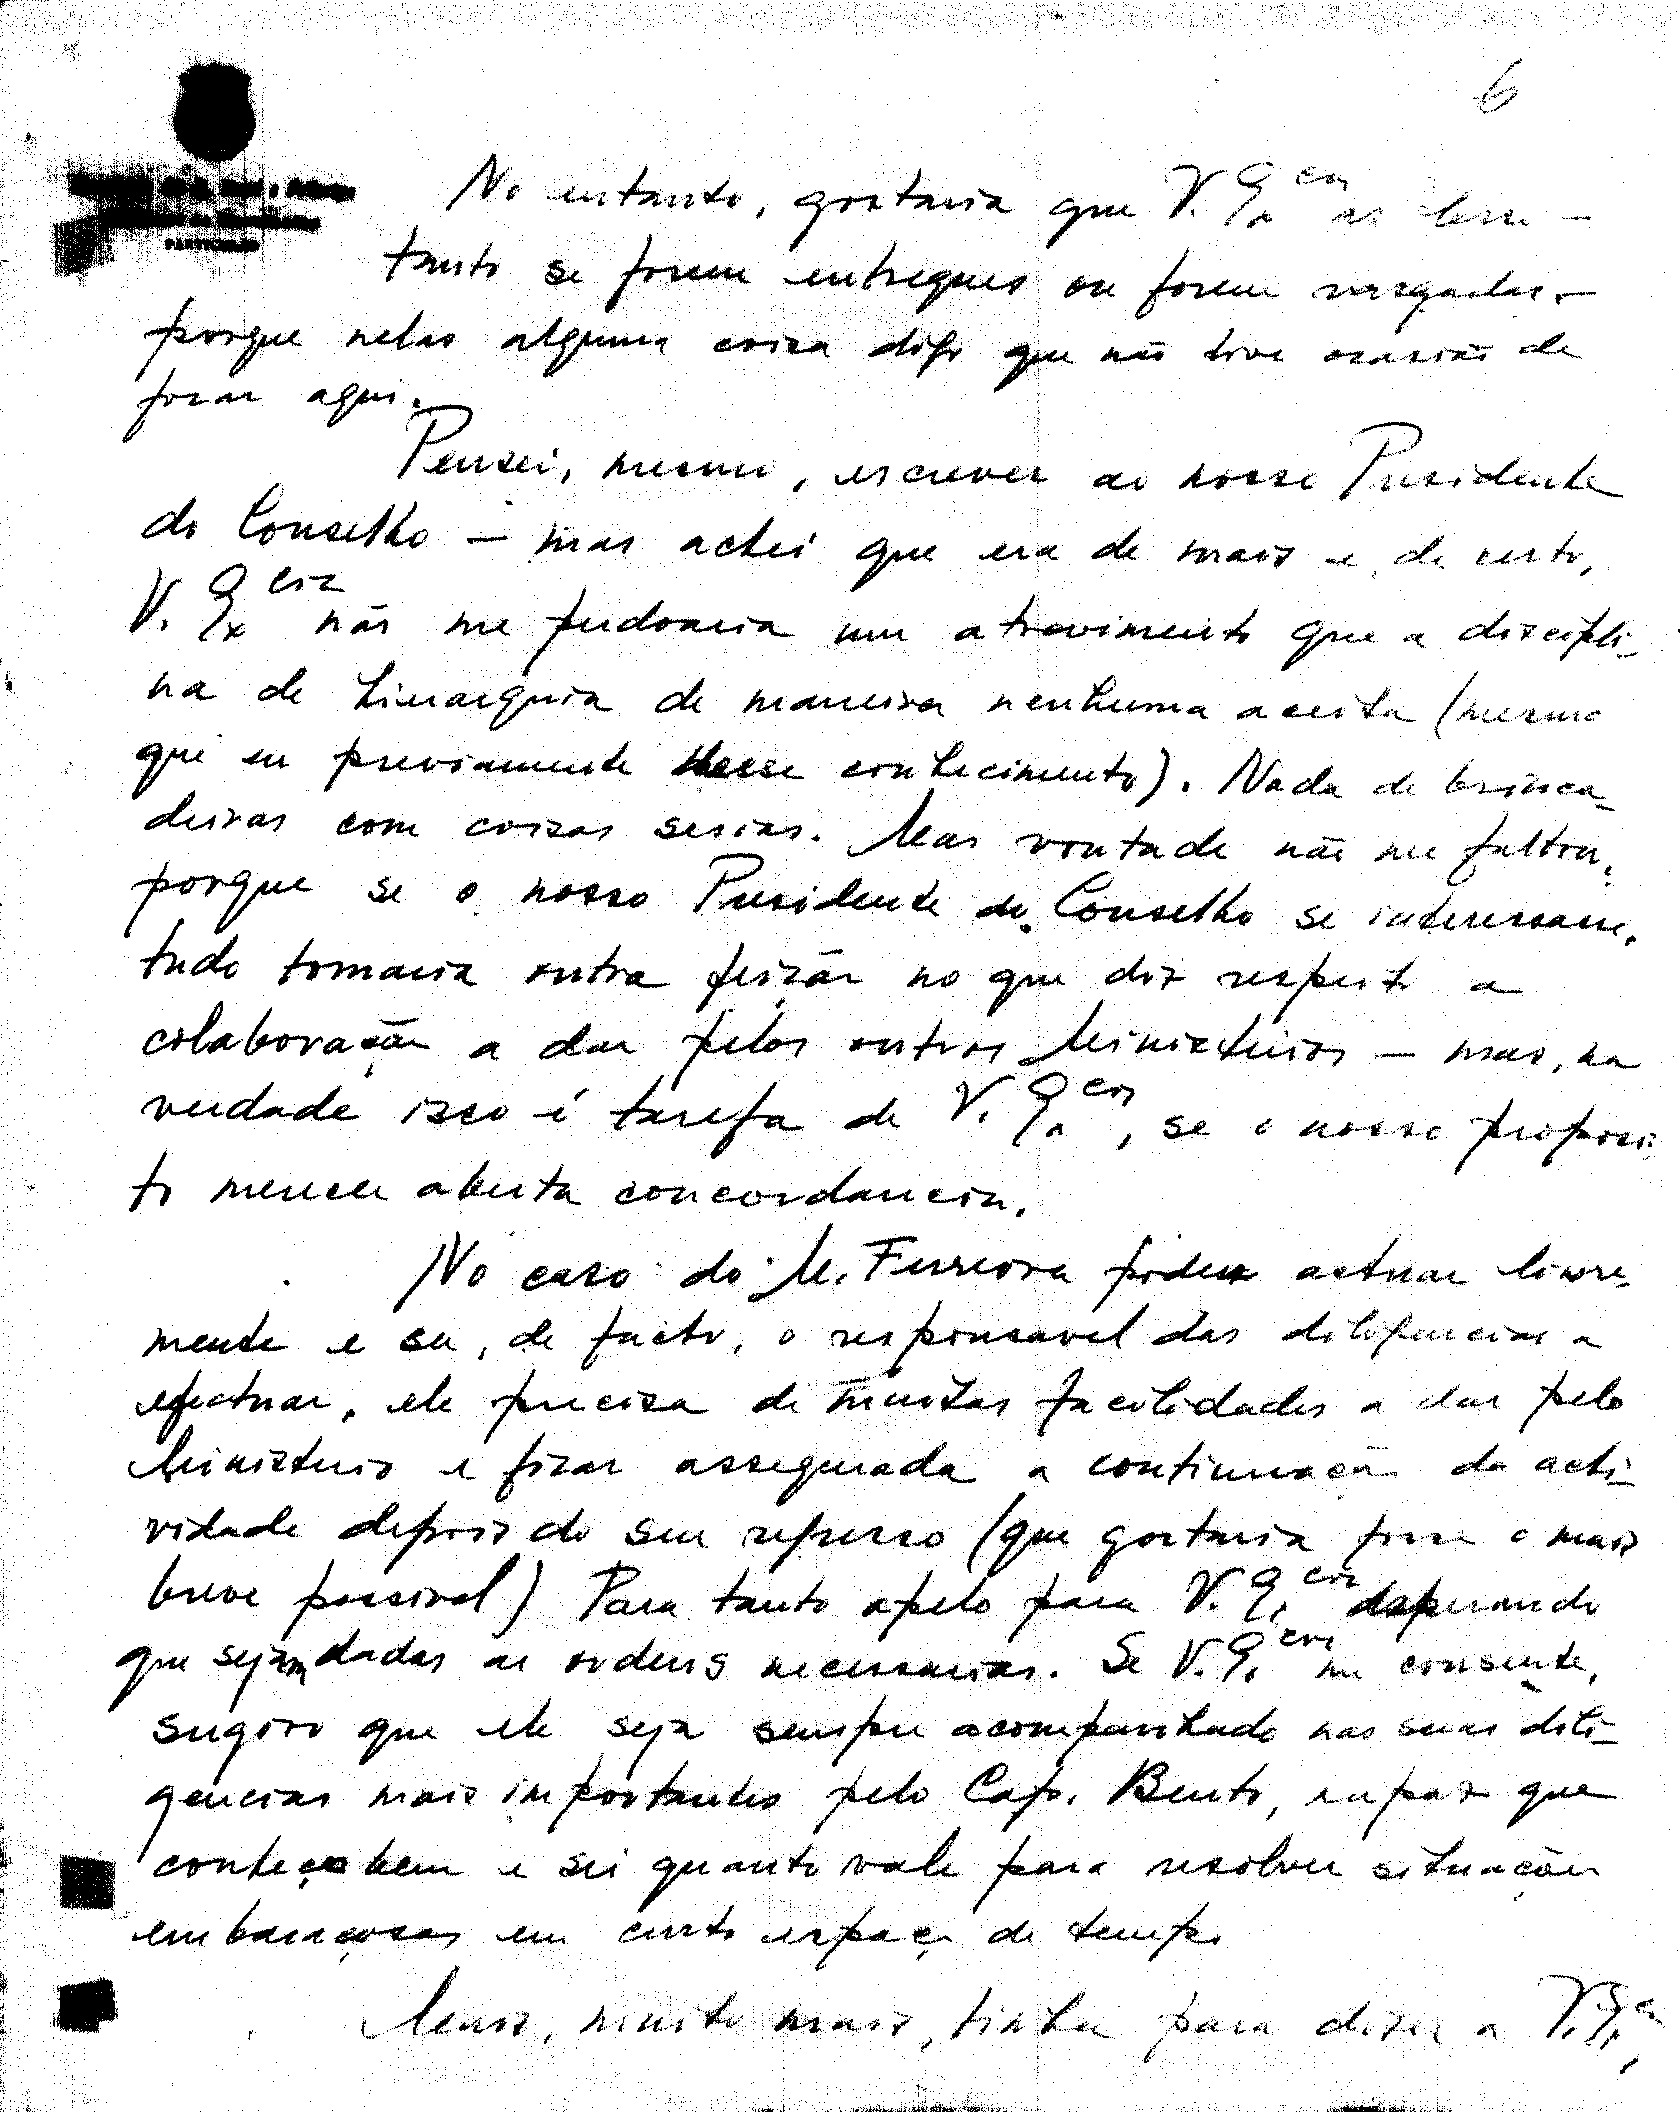 6
No entanto, gostaria que V. Ex.cia as lesse –
tanto se forem entregues ou forem rasgadas –
porque nelas alguma coisa digo que não tive ocasião de
focar aqui.
Pensei, mesmo, escrever ao nosso Presidente
do Conselho – mas achei que era de mais e, de certo,
V. Ex.cia não me perdoaria um atrevimento que a discipli-
na de hierarquia de maneira nenhuma aceita (mesmo
que eu previamente desse conhecimento). Nada de brinca-
deiras com coizas serias. Mas vontade não me faltou,
porque se o nosso Presidente do Conselho se interessasse,
tudo tomaria outra feição no que diz respeito a
colaboração a dar pelos outros Ministerios – mas, na
verdade isso é tarefa de V. Ex.cia, se o nosso proposi-
to merecer aberta concordancia.
No caso do M. Ferreira poder actuar livre-
mente e ser, de facto, o responsavel das diligencias a
efectuar, ele precisa de muitas facilidades a dar pelo
Ministerio e ficar assegurada a continuação da acti-
vidade depois do seu regresso (que gostaria fosse o mais
breve possivel) Para tanto apelo para V. Ex.cia esperando
que sejam dadas as ordens necessarias. Se V. Ex.cia me consente,
sugiro que ele seja sempre acompanhado nas suas dili-
gencias mais importantes pelo Cap. Bento, rapaz que
conheço bem e sei quanto vale para resolver situações
embaraçosas em curto espaço de tempo
Mais, muito mais, tinha para dizer a V. Ex.cia,